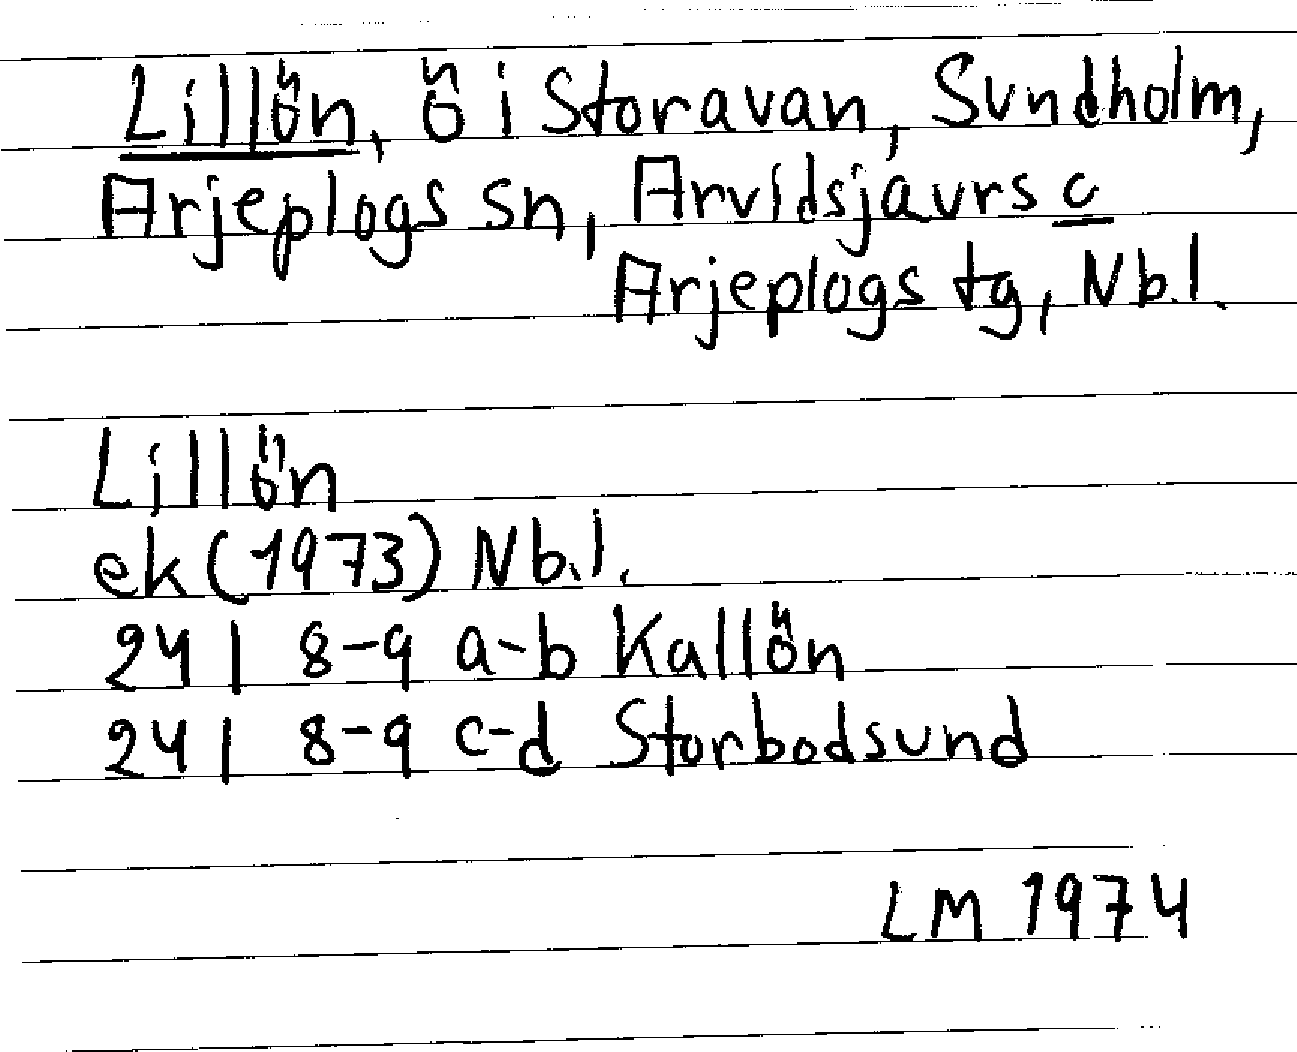 Lillön, ö i Storavan, Sundholm,
Arjeplogs sn, Arvidsjaurs c
Arjeplogs tg, Nb.l.
Lillön
ek (1973) Nb.l.
24 I 8-9 a-b Kallön
24 I 8-9 c-d Storbodsund
LM 1974